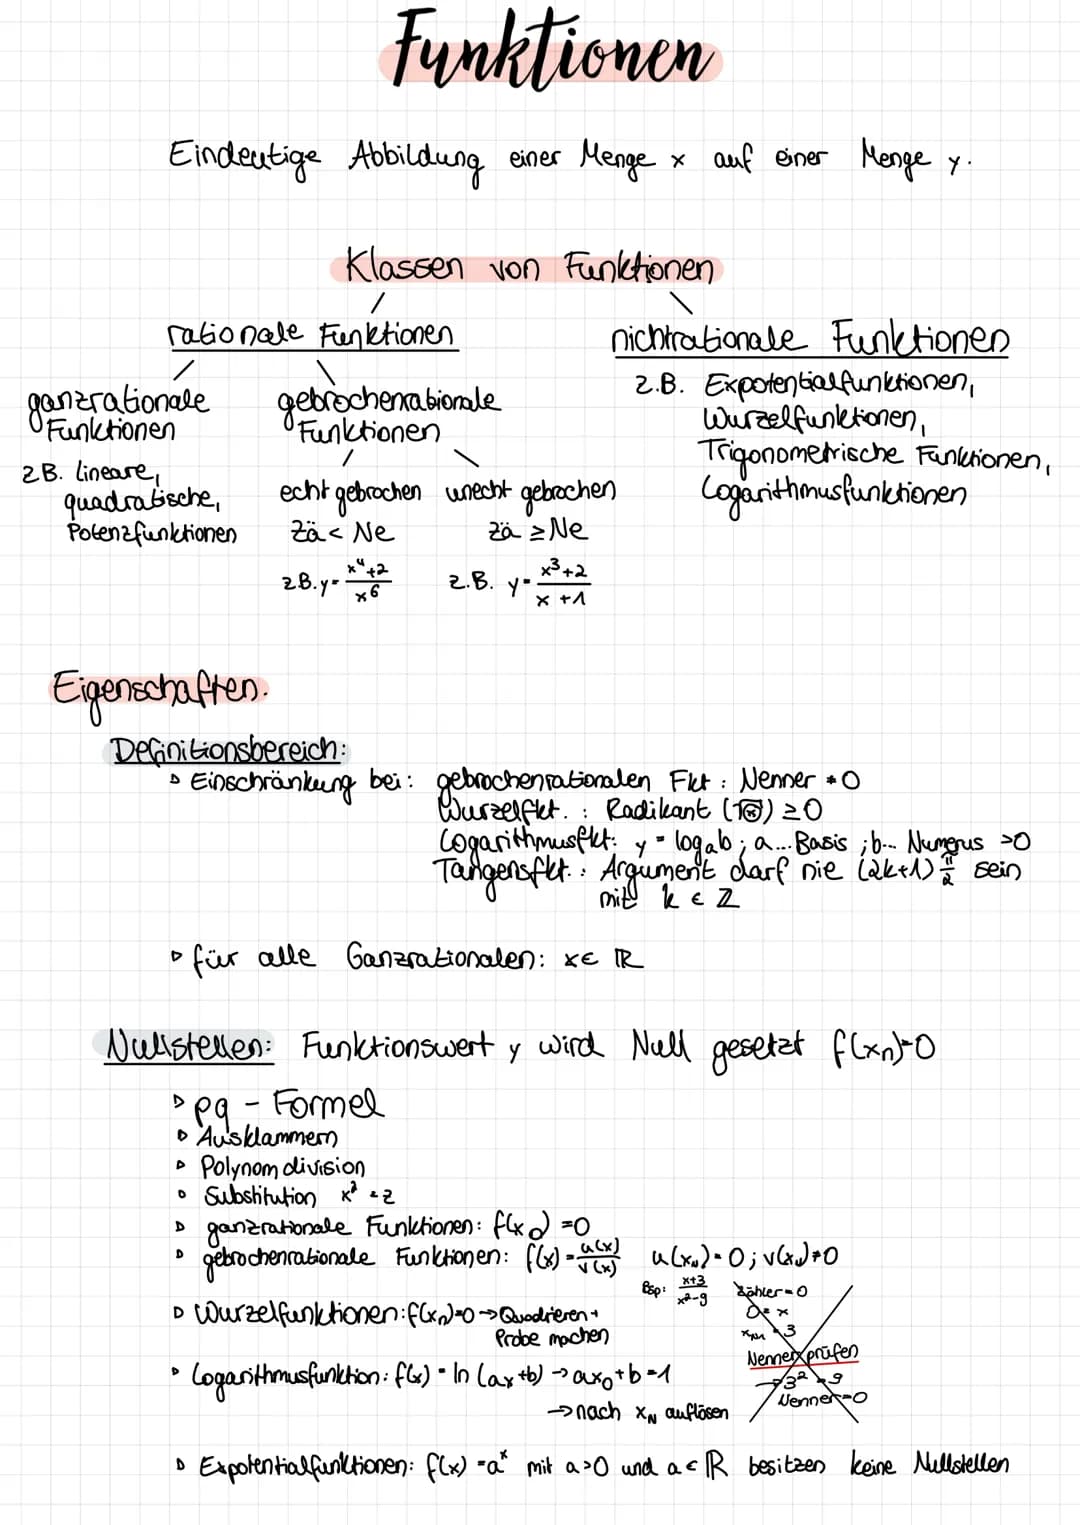 Funktionen
Eindeutige Abbildung einer Menge x auf einer Menge y.
Klassen von Funktionen
rationale Funktionen
nichtrationale Funktionen
ganzrationale
Funktionen
z.B. lineare,
quadratische,
Potenzfunktionen
gebrochenrationale
Funktionen
echt gebrochen
Zä < Ne
z.B. y = (x^4+2)/(x^6)
unecht gebrochen
Zä ≥ Ne
z.B. y = (x^3+2)/(x+1)
z.B. Expotentialfunktionen,
Wurzelfunktionen,
Trigonometrische Funktionen,
Logarithmusfunktionen
Eigenschaften:
Definitionsbereich:
▹ Einschränkung bei: gebrochenrationalen Fkt : Nenner ≠ 0
Wurzelfkt. : Radikant (√x) ≥ 0
Logarithmusfkt: y = log_a b ; a... Basis ; b... Numerus > 0
Tangensfkt. : Argument darf nie (2k+1) π/2 sein
mit k ∈ ℤ
▹ für alle Ganzrationalen: x ∈ ℝ
Nullstellen: Funktionswert y wird Null gesetzt f(x_n)=0
▹ pq - Formel
▹ Ausklammern
▹ Polynomdivision
▹ Substitution x² = z
▹ ganzrationale Funktionen: f(x_0) = 0
▹ gebrochenrationale Funktionen: f(x) = u(x)/v(x) u(x_N) = 0 ; v(x_N) ≠ 0
Bsp: (x+3)/(x²-9)
Zähler = 0
0 = x
3
Nenner prüfen
→ 3² - 9
Nenner = 0
▹ Wurzelfunktionen: f(x_n)=0 → Quadrieren +
Probe machen
▹ Logarithmusfunktion: f(x) = ln (ax+b) → ax_0 + b = 1
→ nach x_N auflösen
▹ Expotentialfunktionen: f(x) = a^x mit a > 0 und a ∈ ℝ besitzen keine Nullstellen